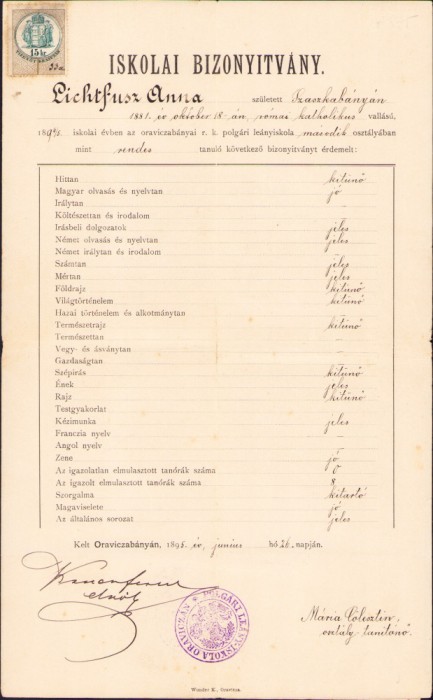 15 kr.
ISKOLAI BIZONYITVÁNY.
Lichtfusz Anna született Szaszkabányán
1881. év október 18-án, római katholikus vallású,
189 4/5. iskolai évben az oraviczabányai r. k. polgári leányiskola második osztályában
mint rendes tanuló következő bizonyitványt érdemelt:
Hittan kitünő
Magyar olvasás és nyelvtan jó
Irálytan —
Költészettan és irodalom —
Irásbeli dolgozatok jeles
Német olvasás és nyelvtan jeles
Német irálytan és irodalom —
Számtan jeles
Mértan jeles
Földrajz kitünő
Világtörténelem kitünő
Hazai történelem és alkotmánytan —
Természetrajz kitünő
Természettan —
Vegy- és ásványtan —
Gazdaságtan —
Szépirás kitünő
Ének jeles
Rajz kitünő
Testgyakorlat —
Kézimunka jeles
Franczia nyelv —
Angol nyelv —
Zene jó
Az igazolatlan elmulasztott tanórák száma 0
Az igazolt elmulasztott tanórák száma 8
Szorgalma kitartó
Magaviselete jó
Az általános sorozat jeles
Kelt Oraviczabányán, 1895. év, junius hó 26. napján.
elnök
POLGÁRI LEÁNY-ISKOLA ORAVICZÁN
Mária Cölesztin,
osztály tanitónő.